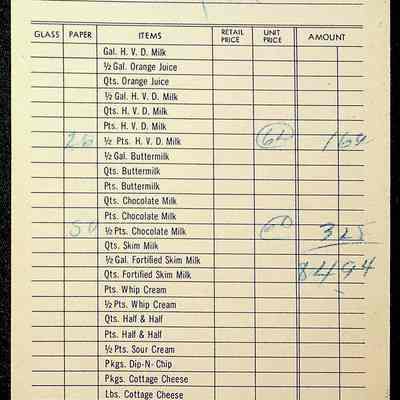 GLASS PAPER ITEMS RETAIL PRICE UNIT PRICE AMOUNT
Gal. H. V. D. Milk
½ Gal. Orange Juice
Qts. Orange Juice
½ Gal. H. V. D. Milk
Qts. H. V. D. Milk
Pts. H. V. D. Milk
½ Pts. H. V. D. Milk
½ Gal. Buttermilk
Qts. Buttermilk
Pts. Buttermilk
Qts. Chocolate Milk
Pts. Chocolate Milk
50 ½ Pts. Chocolate Milk 325
Qts. Skim Milk
½ Gal. Fortified Skim Milk 8494
Qts. Fortified Skim Milk
Pts. Whip Cream
½ Pts. Whip Cream
Qts. Half & Half
Pts. Half & Half
½ Pts. Sour Cream
Pkgs. Dip-N-Chip
Pkgs. Cottage Cheese
Lbs. Cottage Cheese